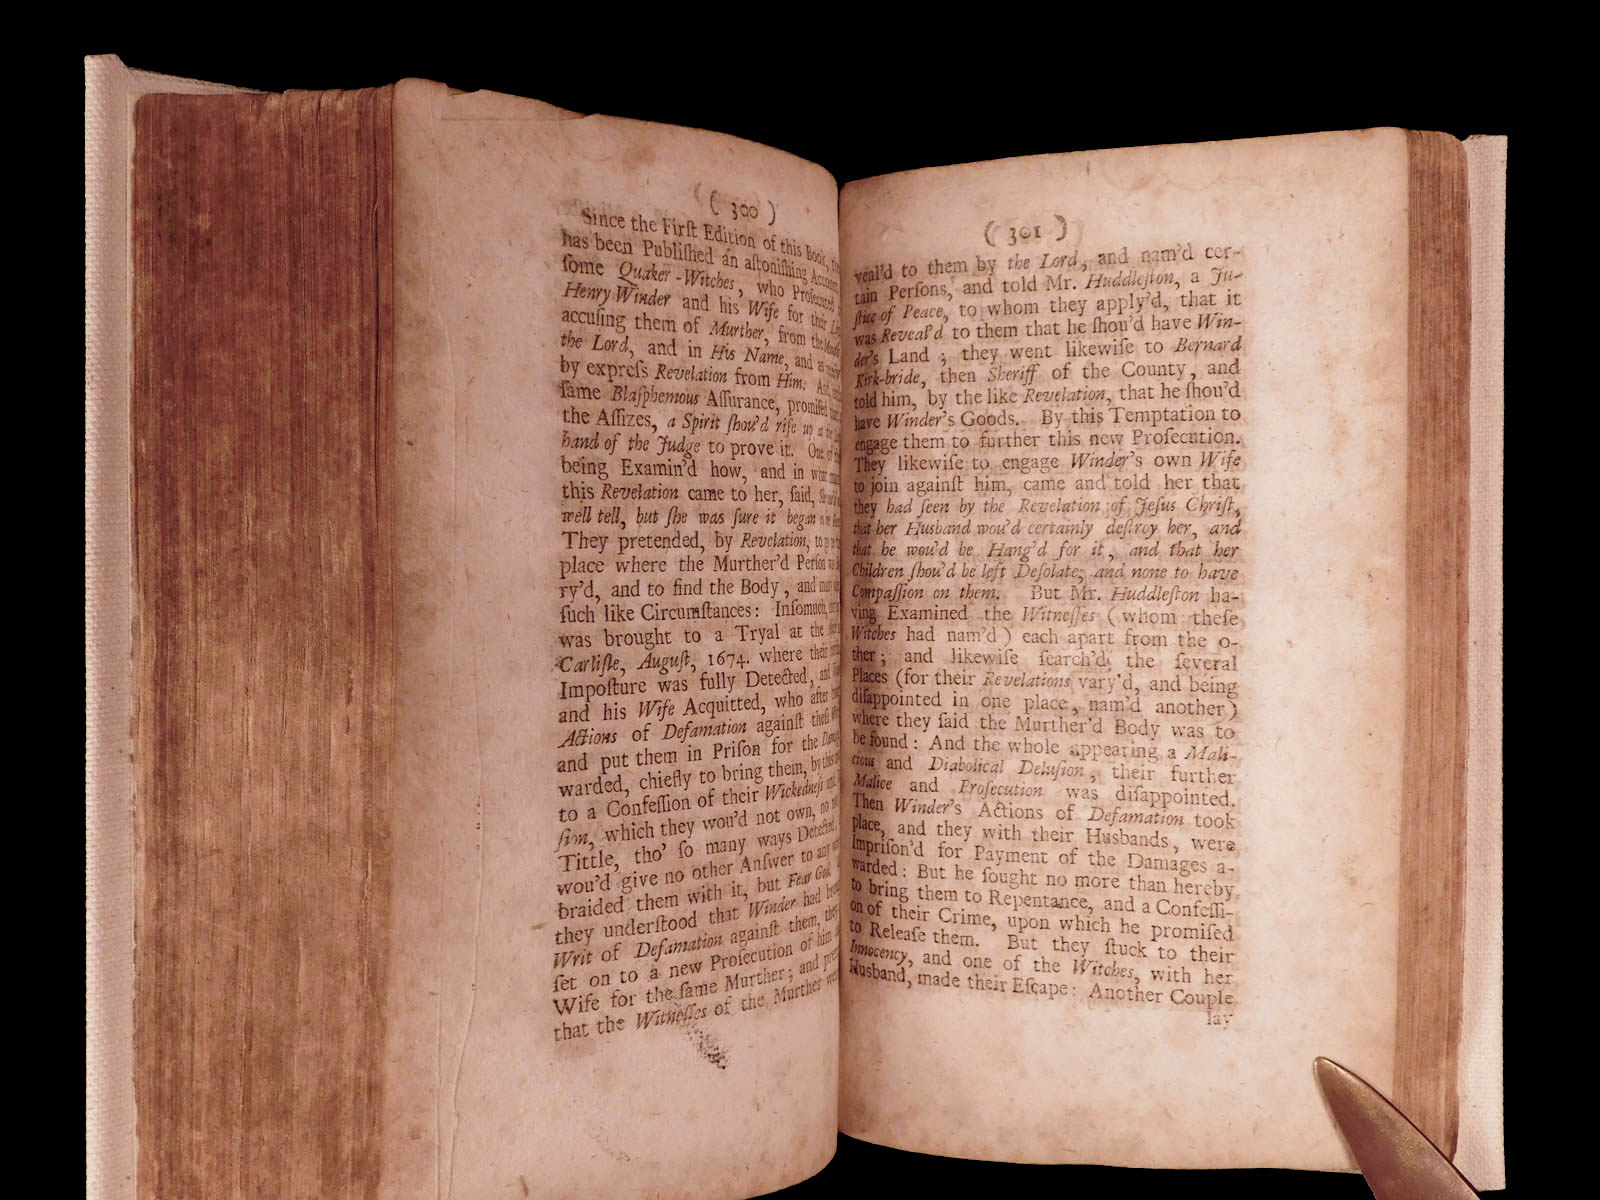 ( 300 )
Since the Firſt Edition of this Book,
has been Publiſhed an aſtoniſhing Account
ſome Quaker-Witches, who Proſecuted
Henry Winder and his Wife for their
accuſing them of Murther, from the
the Lord, and in His Name, and as
by expreſs Revelation from Him: And,
ſame Blaſphemous Aſſurance, promiſed
the Aſſizes, a Spirit ſhou'd riſe up at the
hand of the Judge to prove it. One of
being Examin'd how, and in what
this Revelation came to her, ſaid,
well tell, but ſhe was ſure it began
They pretended, by Revelation, to
place where the Murther'd Perſon
ry'd, and to find the Body, and
ſuch like Circumſtances: Inſomuch,
was brought to a Tryal at the
Carliſle, Auguſt, 1674. where their
Impoſture was fully Detected, and
and his Wife Acquitted, who after
Actions of Defamation againſt theſe
and put them in Priſon for the
warded, chiefly to bring them, by this
to a Confeſſion of their Wickedneſs
ſion, which they wou'd not own, no
Tittle, tho' ſo many ways Detected,
wou'd give no other Anſwer to any
braided them with it, but Fear God.
they underſtood that Winder had
Writ of Defamation againſt them, they
ſet on to a new Proſecution of him
Wife for the ſame Murther; and
that the Witneſſes of the Murther were
( 301 )
veal'd to them by the Lord, and nam'd cer-
tain Perſons, and told Mr. Huddleſton, a Ju-
ſtice of Peace, to whom they apply'd, that it
was Reveal'd to them that he ſhou'd have Win-
der's Land; they went likewiſe to Bernard
Kirk-bride, then Sheriff of the County, and
told him, by the like Revelation, that he ſhou'd
have Winder's Goods. By this Temptation to
engage them to further this new Proſecution.
They likewiſe to engage Winder's own Wife
to join againſt him, came and told her that
they had ſeen by the Revelation of Jeſus Chriſt,
that her Husband wou'd certainly deſtroy her, and
that he wou'd be Hang'd for it, and that her
Children ſhou'd be left Deſolate, and none to have
Compaſſion on them. But Mr. Huddleſton ha-
ving Examined the Witneſſes (whom theſe
Witches had nam'd) each apart from the o-
ther; and likewiſe ſearch'd the ſeveral
Places (for their Revelations vary'd, and being
diſappointed in one place, nam'd another)
where they ſaid the Murther'd Body was to
be found: And the whole appearing a Mali-
cious and Diabolical Deluſion, their further
Malice and Proſecution was diſappointed.
Then Winder's Actions of Defamation took
place, and they with their Husbands, were
Impriſon'd for Payment of the Damages a-
warded: But he ſought no more than hereby
to bring them to Repentance, and a Confeſſi-
on of their Crime, upon which he promiſed
to Releaſe them. But they ſtuck to their
Innocency, and one of the Witches, with her
Husband, made their Eſcape: Another Couple
lay